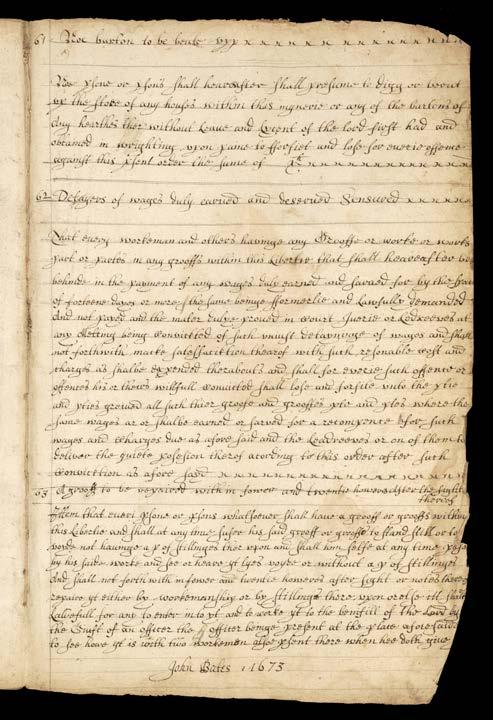 61 Noe barton to be beate vpp x x x x x x x x x x x x x x
Noe psone or psons shall heareafter shall presume to digg or worck
vp the floore of any houses within this mynerie or any of the bartons of
any hearthes ther without Leave and Lycent of the lord first had and
obtained in wrighting vpon paine to fforfiet and lose for everie offence
against this psent order the sume of x x x x x x x x x x x
62 Detayers of wages duly earned and deserved Sensured x x x x x
That every workeman and others havinge any Grooffe or worke or works
part or partes in any grooffs within this Libertie that shall heareafter be
behinde in the payment of any wages duly earned and sarved for by the space
of forteene dayes or more the same beinge fformerlie and Lawfully demanded
And not payed and the mater dulye proved in Court Juerie or Leadreeves at
any Metting being Convitted of such uniust detayninge of wages and shall
not forthwith make satesfacttion thearof with such resonable Cost and
charges as shalbe expended theraboute and shall for everie such offence or
offences his or theires willfull Comitted shall lose and forfite unto the ptie
and pties greived all such thier groofe and grooffes pte and ptes where the
same wages ar or shalbe earned or sarved for a recompence for such
wages and Charges due as afore said and the Leadreeves or on of them to
deliver the quiete posesion therof acording to this order after such
Convicttion as afore said x x x x x x x x x x x x x
63 A grooff to be repaired within fower and twentie howers after the sight
therof
Ittem that everi psone or psons whatsoever shall have a grooff or grooffs within
this Libertie and shall at any time sufer his said grooff or grooffs to stand still or to
worke not havinge a p of stillinges ther vpon and shall him selfe at any time passe
by his said worke and see or heare yt lyes voyde or without a p of stillings
And shall not forth with in fower and twentie howers after sight or notes therof
repaire yt either by workemanship or by stillings there vpon orelse itt shalbe
Lawefull for any to enter in to yt and to worke yt to the benifitt of the Lord by
the of an officer the officer beinge present at the place aforesaid
to see howe yt is with two workemen also psent there when hee doth give
John Bates 1673